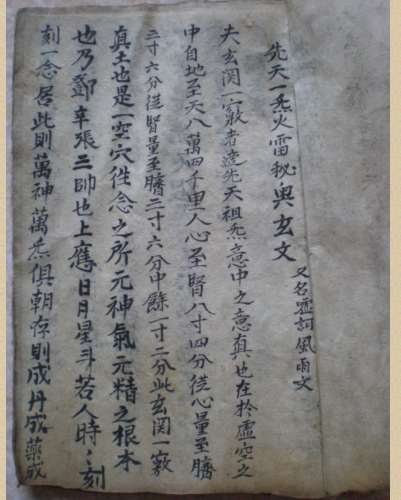 先天一炁火雷秘奧玄文
又名嘘訶風雨文
夫玄関一竅者達先天祖炁意中之意真也在於虛空之
中自地至天八萬四千里人心至腎八寸四分従心量至臍
三寸六分從腎量至臍三寸六分中餘一寸二分此玄関一竅
真土也是一空穴性念之所元神氣元精之根本
也乃鄧辛張三帥也上應日月星斗若人時〻刻
刻一念居此則萬神萬炁俱朝存則成丹成藥成